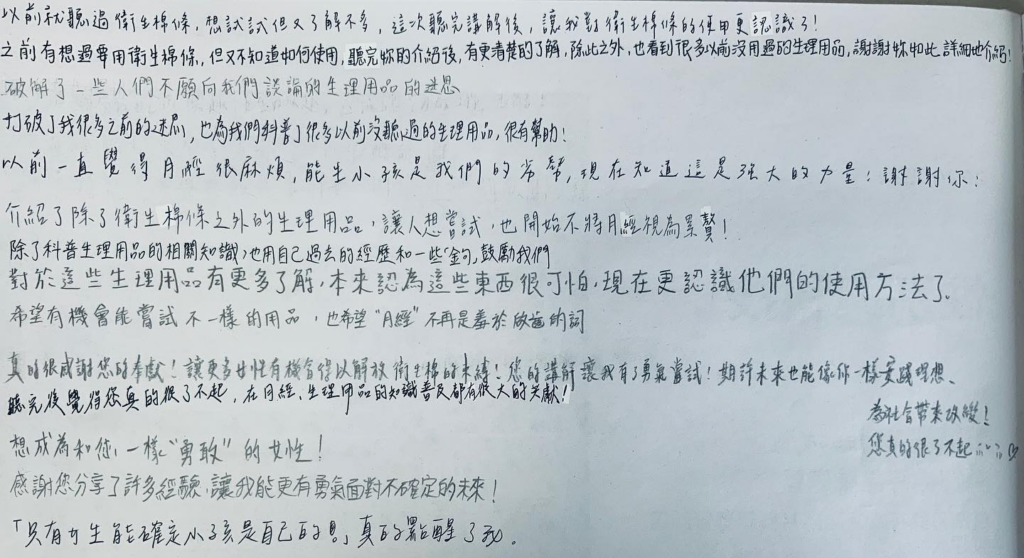 以前就聽過衛生棉條，想試試但又了解不多，這次聽完講解後，讓我對衛生棉條的使用更認識了！
之前有想過要用衛生棉條，但又不知道如何使用，聽完妳的介紹後，有更清楚的了解，除此之外，也看到很多以前沒用過的生理用品，謝謝妳如此詳細地介紹！
破解了一些人們不願向我們談論的生理用品的迷思
打破了我很多之前的迷思，也為我們科普了很多以前沒聽過的生理用品，很有幫助！
以前一直覺得月經很麻煩，能生小孩是我們的劣勢，現在知道這是強大的力量！謝謝你！
介紹了除了衛生棉條之外的生理用品，讓人想嘗試，也開始不將月經視為累贅！
除了科普生理用品的相關知識，也用自己過去的經歷和一些金句，鼓勵我們
對於這些生理用品有更多了解，本來認為這些東西很可怕，現在更認識他們的使用方法了。
希望有機會能嘗試不一樣的用品，也希望"月經"不再是羞於啟齒的詞
真的很感謝您的奉獻！讓更多女性有機會得以解放衛生棉的束縛！您的講解讓我有了勇氣嘗試！期許未來也能像你一樣實踐理想、
為社會帶來改變！
聽完後覺得您真的很了不起，在月經、生理用品的知識普及都有很大的貢獻！
您真的很了不起
想成為和您一樣"勇敢"的女性！
感謝您分享了許多經驗，讓我能更有勇氣面對不確定的未來！
「只有女生能確定小孩是自己的」真的點醒了我。